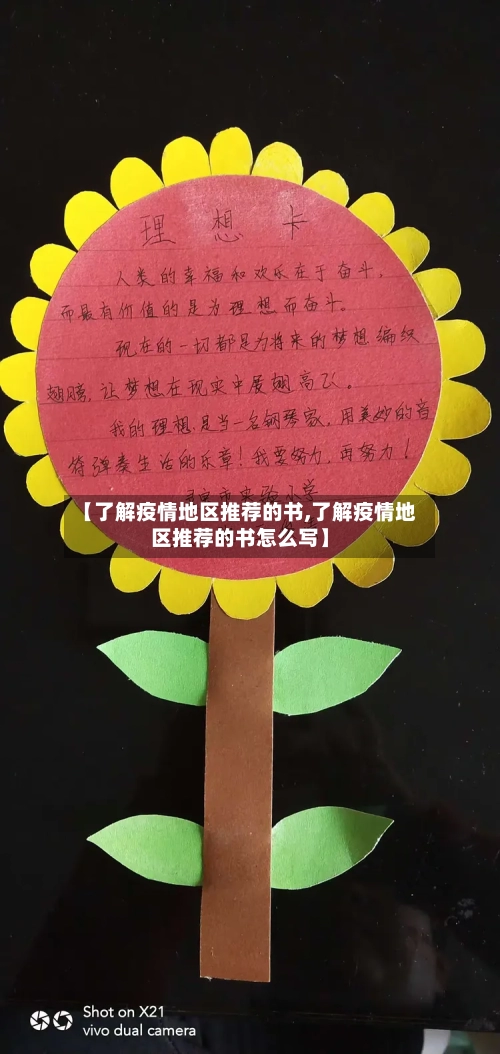 理 想 卡
人类的幸福和欢乐在于奋斗,
而最有价值的是为理想而奋斗。
现在的一切都是为将来的梦想编织
翅膀,让梦想在现实中展翅高飞。
我的理想是当一名钢琴家,用美妙的音
符弹奏生活的乐章!我要努力,再努力!
实验小学
【了解疫情地区推荐的书,了解疫情地
区推荐的书怎么写】
Shot on X21
vivo dual camera